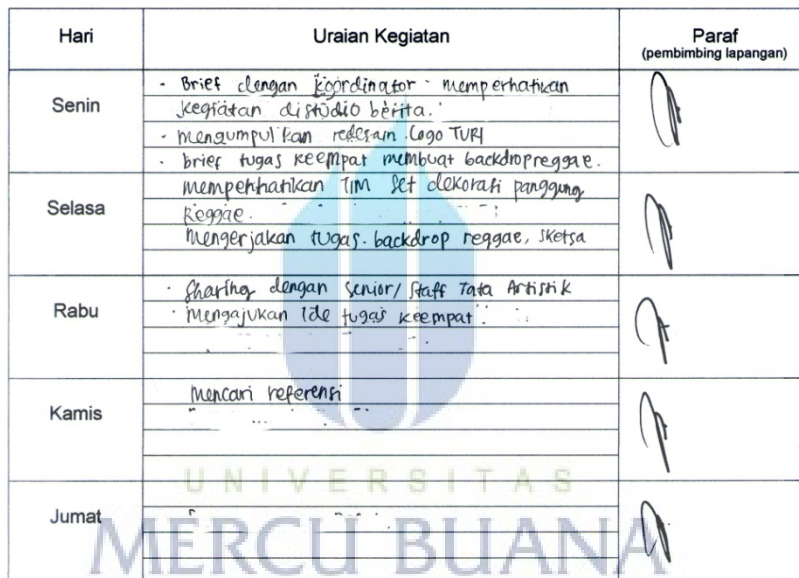 Hari Uraian Kegiatan Paraf
(pembimbing lapangan)
Senin
- Brief dengan koordinator - memperhatikan
kegiatan distudio berita.
- mengumpulkan redesain logo TVRI
- brief tugas keempat membuat backdrop reggae.
Selasa
memperhatikan TIM Set dekorasi panggung
Reggae.
Mengerjakan tugas backdrop reggae, sketsa
Rabu
- Sharing dengan Senior/ Staff Tata Artistik
- mengajukan ide tugas keempat
Kamis
Mencari referensi
Jumat
UNIVERSITAS
MERCU BUANA